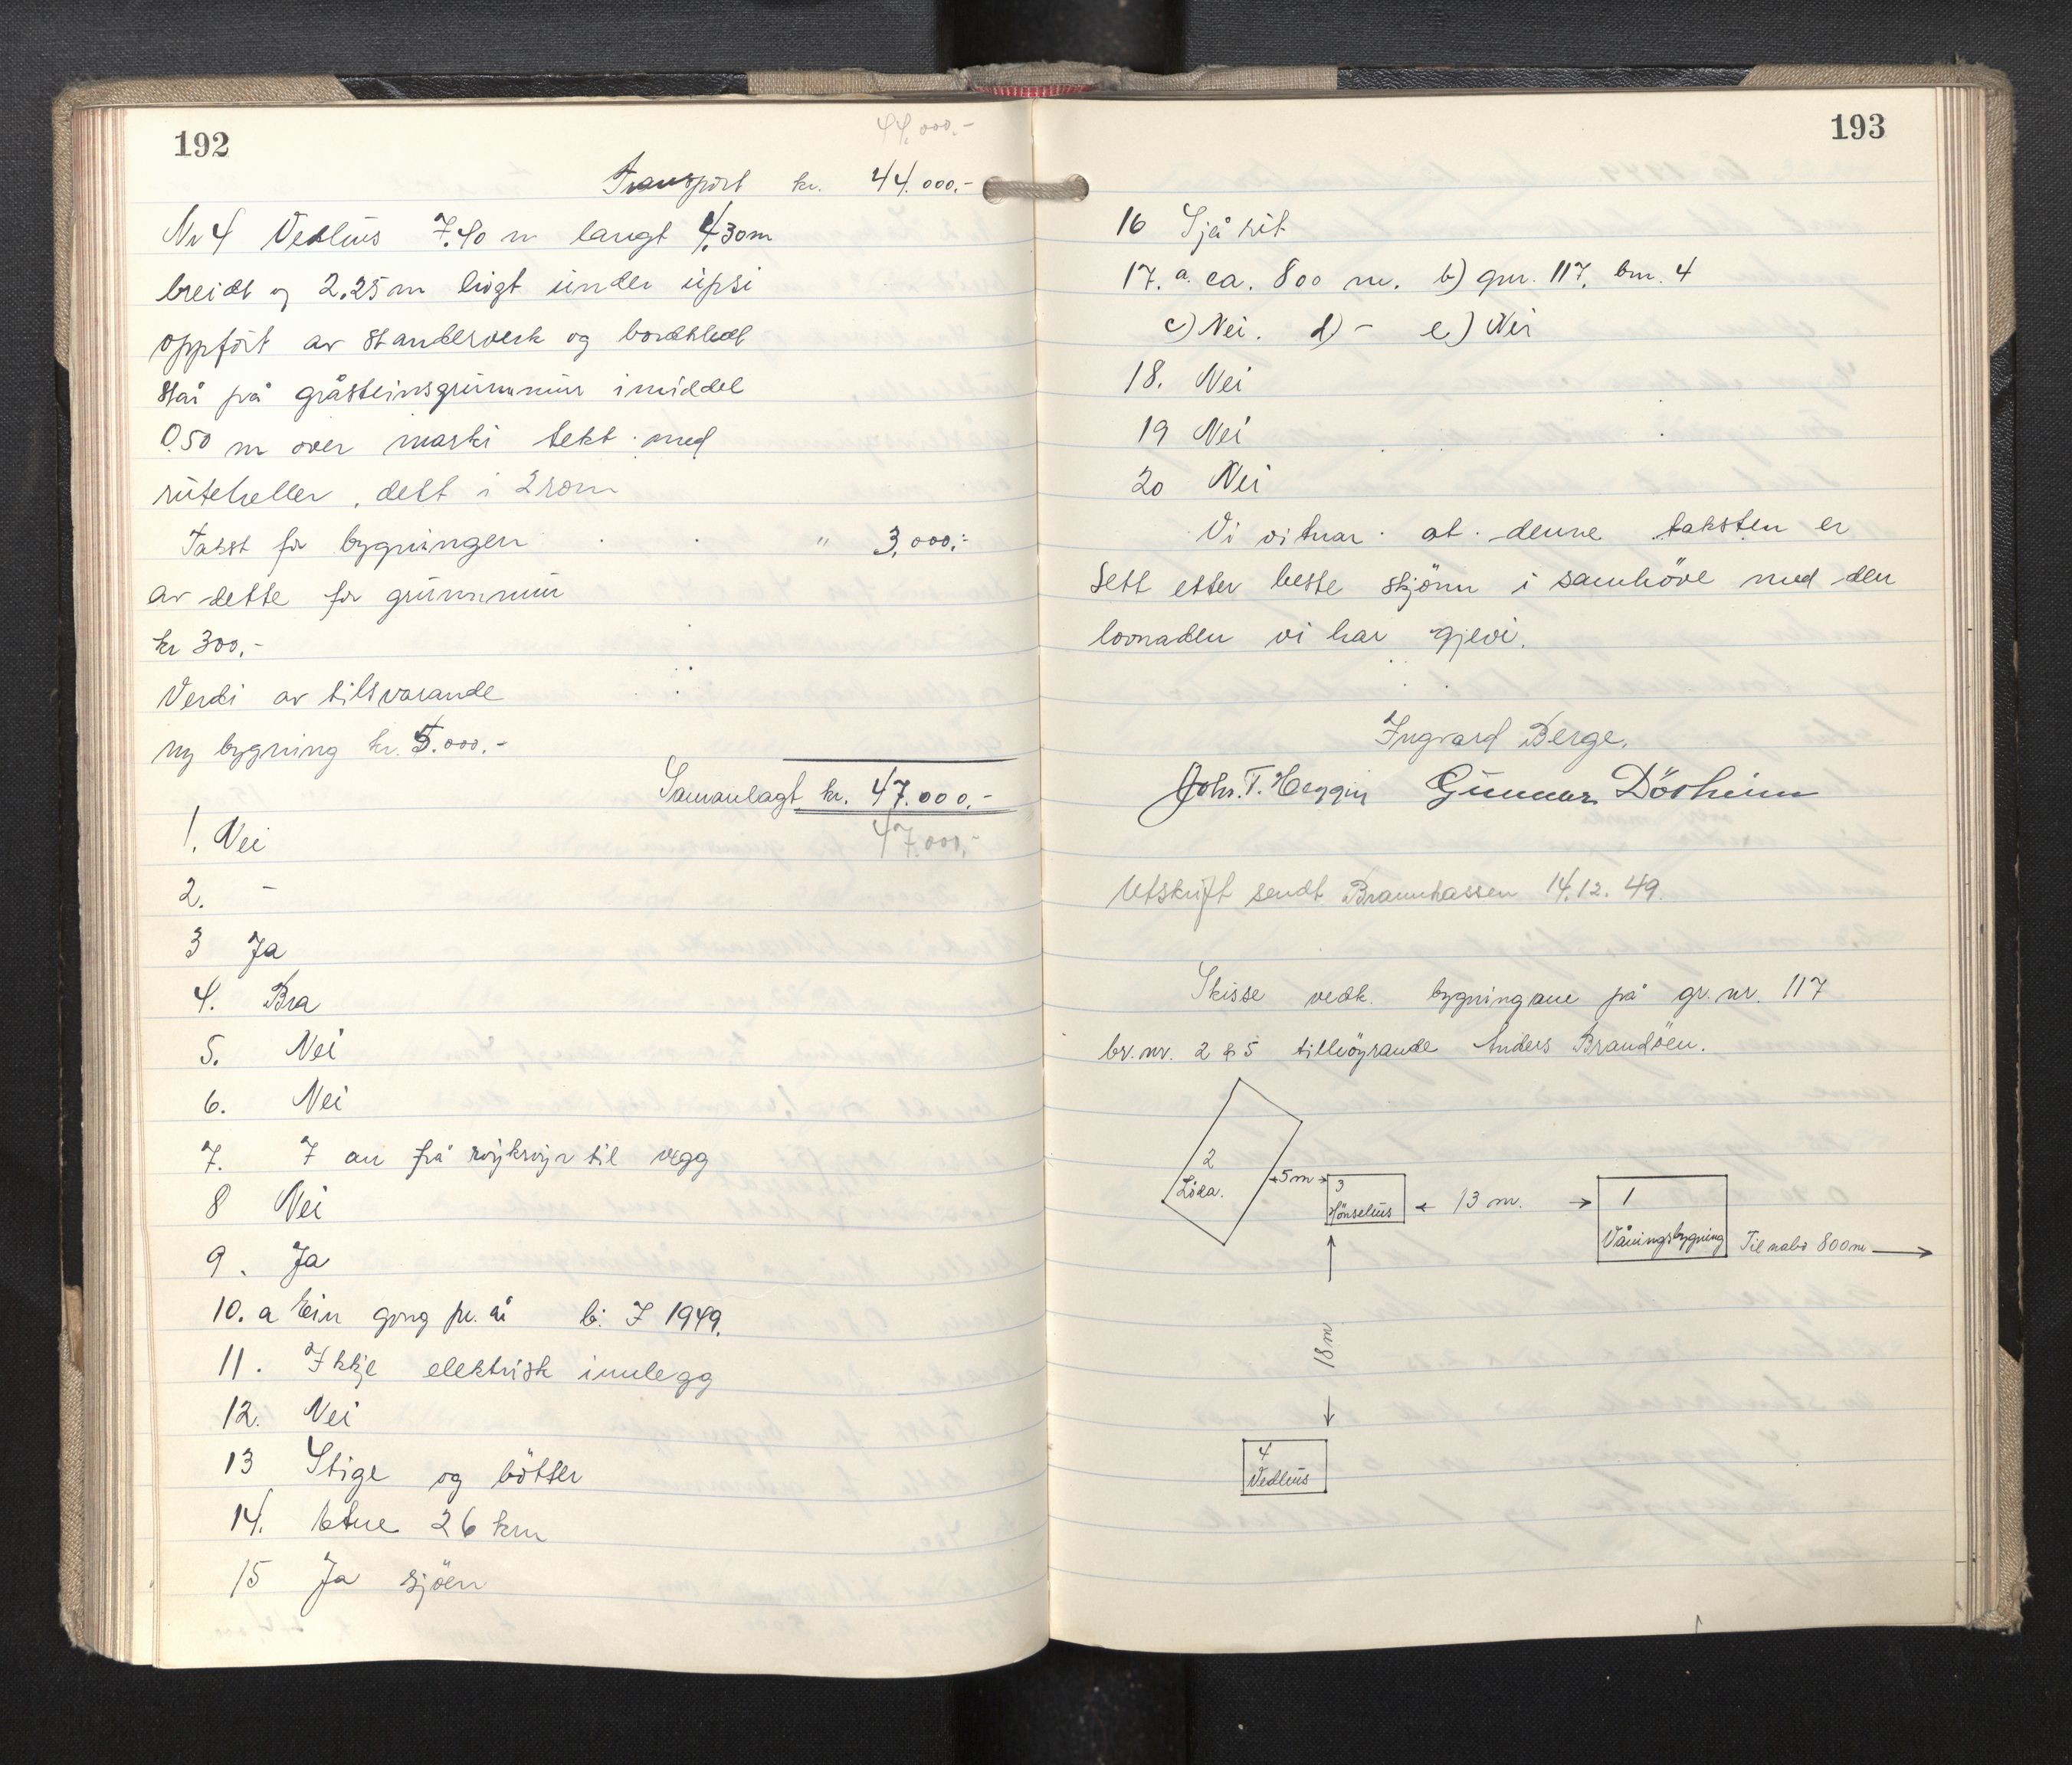 192
44.000.-
Transport kr. 44.000.-
Nr 4 Vedhus 7.40 m langt 4.30m
breidt og 2.25 m høgt under upsi
oppført av standerverk og bordkledt
står på gråsteinsgrunnmur imiddel
0.50 m over marki tekt med
ruteheller, delt i 2 rom
Takst for bygningen " 3.000.-
av dette for grunnmur
kr 300,-
Verdi av tilsvarande
ny bygning kr. 5.000.-
Samanlagt kr. 47.000.-
47.000.-
1. Nei
2. -
3 Ja
4. Bra
5. Nei
6. Nei
7. 7 cm frå røykrøyr til vegg
8 Nei
9. Ja
10. a Ein gong pr. år b: I 1949.
11. Ikkje elektrisk innlegg
12. Nei
13 Stige og bötter
14. Etne 26 km
15 Ja sjöen
193
16 Sjå rit
17. a. ca. 800 m. b) gnr. 117, bnr. 4
c) Nei. d) - e) Nei
18. Nei
19 Nei
20 Nei
Vi vitnar at denne taksten er
sett etter beste skjönn i samhöve med den
lovnaden vi har gjevi.
Ingvard Berge.
Johs. T. Heggen Gunnar Dörheim
Utskrift sendt Brannkassen 14.12.49.
Skisse vedk. bygningane på gr. nr. 117
br. nr. 2 & 5 tilhöyrande Anders Brandöen.
2
Löda.
5m
3
Hönsehus
13 m.
1
Våningsbygning
Til nabo 800m
18m
4
Vedhus